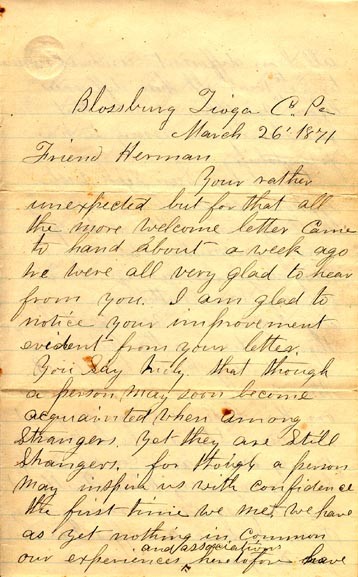 Blossburg Tioga C. Pa
March 26' 1871
Friend Herman
Your rather
unexpected but for that all
the more welcome letter Came
to hand about a week ago
we were all very glad to hear
from you. I am glad to
notice your improvement
evident from your letter.
You say truly that though
a person may soon become
acquainted when among
Strangers. Yet they are Still
Strangers. for though a person
may inspire us with confidence
the first time we met, we have
as yet nothing in Common
and associations
our experiences heretofor have